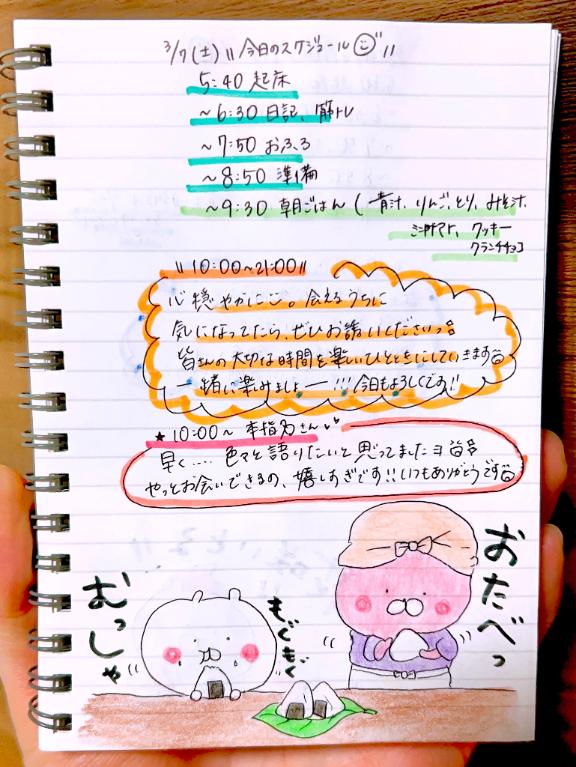 3/7(土) 〃今日のスケジュール〃
5:40 起床
~6:30 日記、筋トレ
~7:50 おふろ
~8:50 準備
~9:30 朝ごはん( 青汁、りんご、とり、みそ汁、
ミニトマト、クッキー
クランチチョコ)
〃10:00~21:00〃
心穏やかに。会えるうちに
気になってたら、ぜひお誘いくださいっ
皆さんの大切な時間を楽しいひとときにしていきます
ー緒に楽みましょー!!!今日もよろしくです!!
★10:00~ 本指名さん
早く.... 色々と語りたいと思ってましたヨ
やっとお会いできるの、嬉しすぎです!!いつもありがとうです
おたべっ
もぐもぐ
むっしゃ